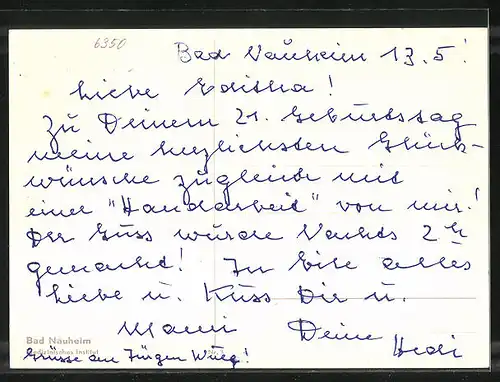 6350
Bad Nauheim 13.5.!
Liebe Editha!
Zu Deinem 21. Geburtstag
meine herzlichsten Glück-
wünsche zugleich mit
einer "Handarbeit" von mir!
Der Guss wurde Nachts 2 h
gemacht! In Eile alles
Liebe u. Kuss Dir u.
Mami Deine
Hedi
Bad Nauheim
Medizinisches Institut
Grüsse an Jürgen